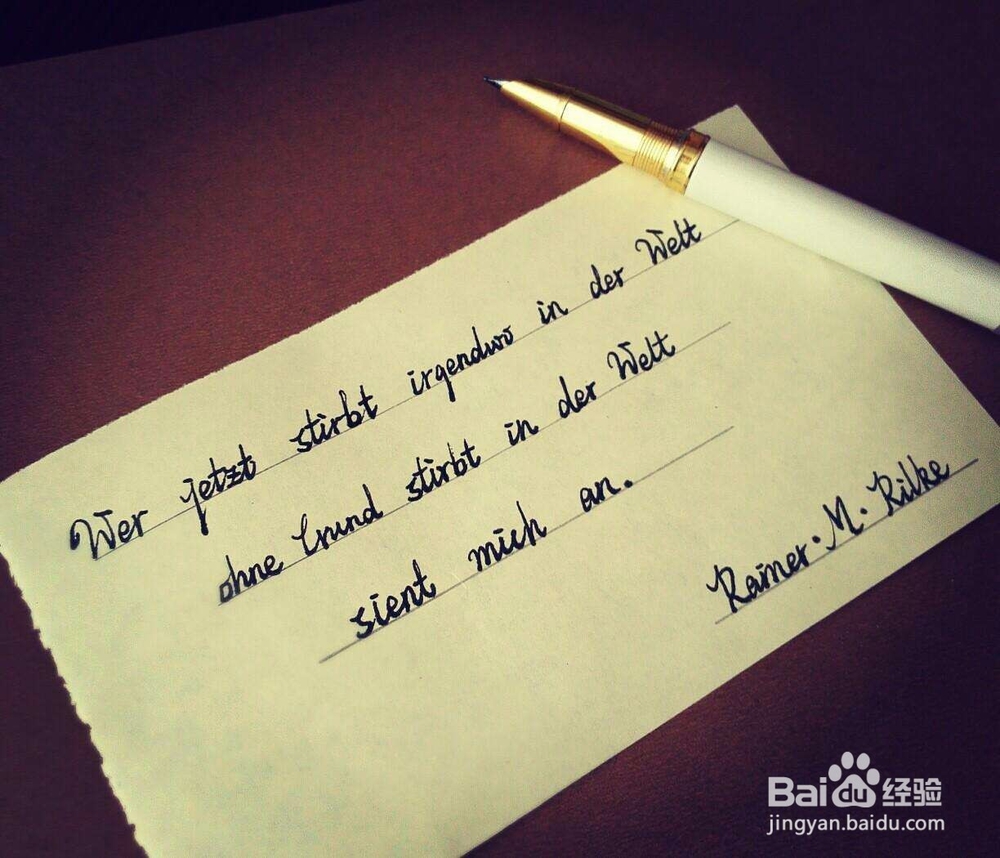 Wer jetzt stirbt irgendwo in der Welt
ohne Grund stirbt in der Welt
sient mich an.
Rainer·M·Rilke
Bai du 经验
jingyan.baidu.com